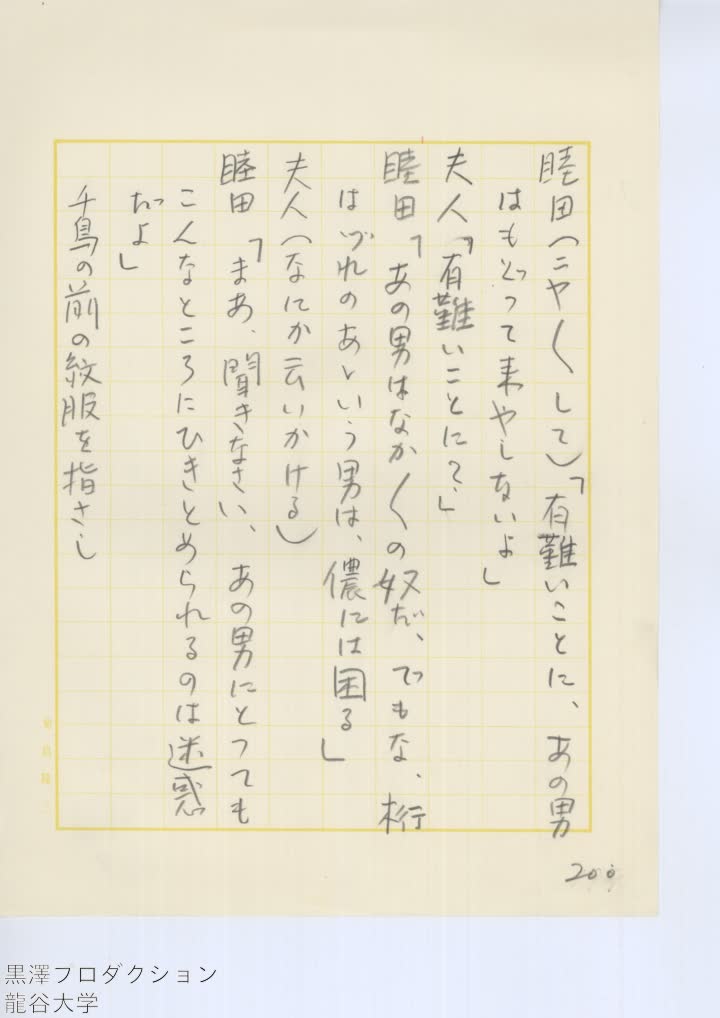 睦田(ニヤ〱して)「有難いことに、あの男
はもどって来やしないよ」
夫人「有難いことに?」
睦田「あの男はなか〱の奴だ、でもな、桁
はづれのあゝいう男は、儂には困る」
夫人(なにか云いかける)
睦田「まあ、聞きなさい、あの男にとっても
こんなところにひきとめられるのは迷惑
だよ」
千鳥の前の紋服を指さし
200
黒澤プロダクション
龍谷大学